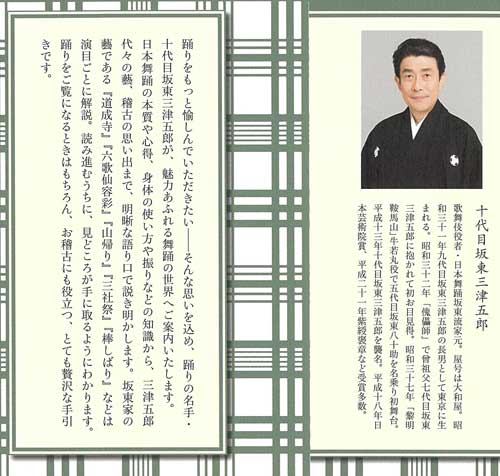 十代目坂東三津五郎
歌舞伎役者・日本舞踊坂東流家元。屋号は大和屋。昭
和三十一年九代目坂東三津五郎の長男として東京に生
まれる。昭和三十二年「傀儡師」で曾祖父七代目坂東
三津五郎に抱かれて初お目見得。昭和三十七年「黎明
鞍馬山」牛若丸役で五代目坂東八十助を名乗り初舞台。
平成十三年十代目坂東三津五郎を襲名。平成十八年日
本芸術院賞、平成二十一年紫綬褒章など受賞多数。
踊りをもっと愉しんでいただきたい――そんな思いを込め、踊りの名手・
十代目坂東三津五郎が、魅力あふれる舞踊の世界へご案内いたします。
日本舞踊の本質や心得、身体の使い方や振りなどの知識から、三津五郎
代々の藝、稽古の思い出まで、明晰な語り口で説き明かします。坂東家の
藝である『道成寺』『六歌仙容彩』『山帰り』『三社祭』『棒しばり』などは
演目ごとに解説。読み進むうちに、見どころが手に取るようにわかります。
踊りをご覧になるときはもちろん、お稽古にも役立つ、とても贅沢な手引
きです。